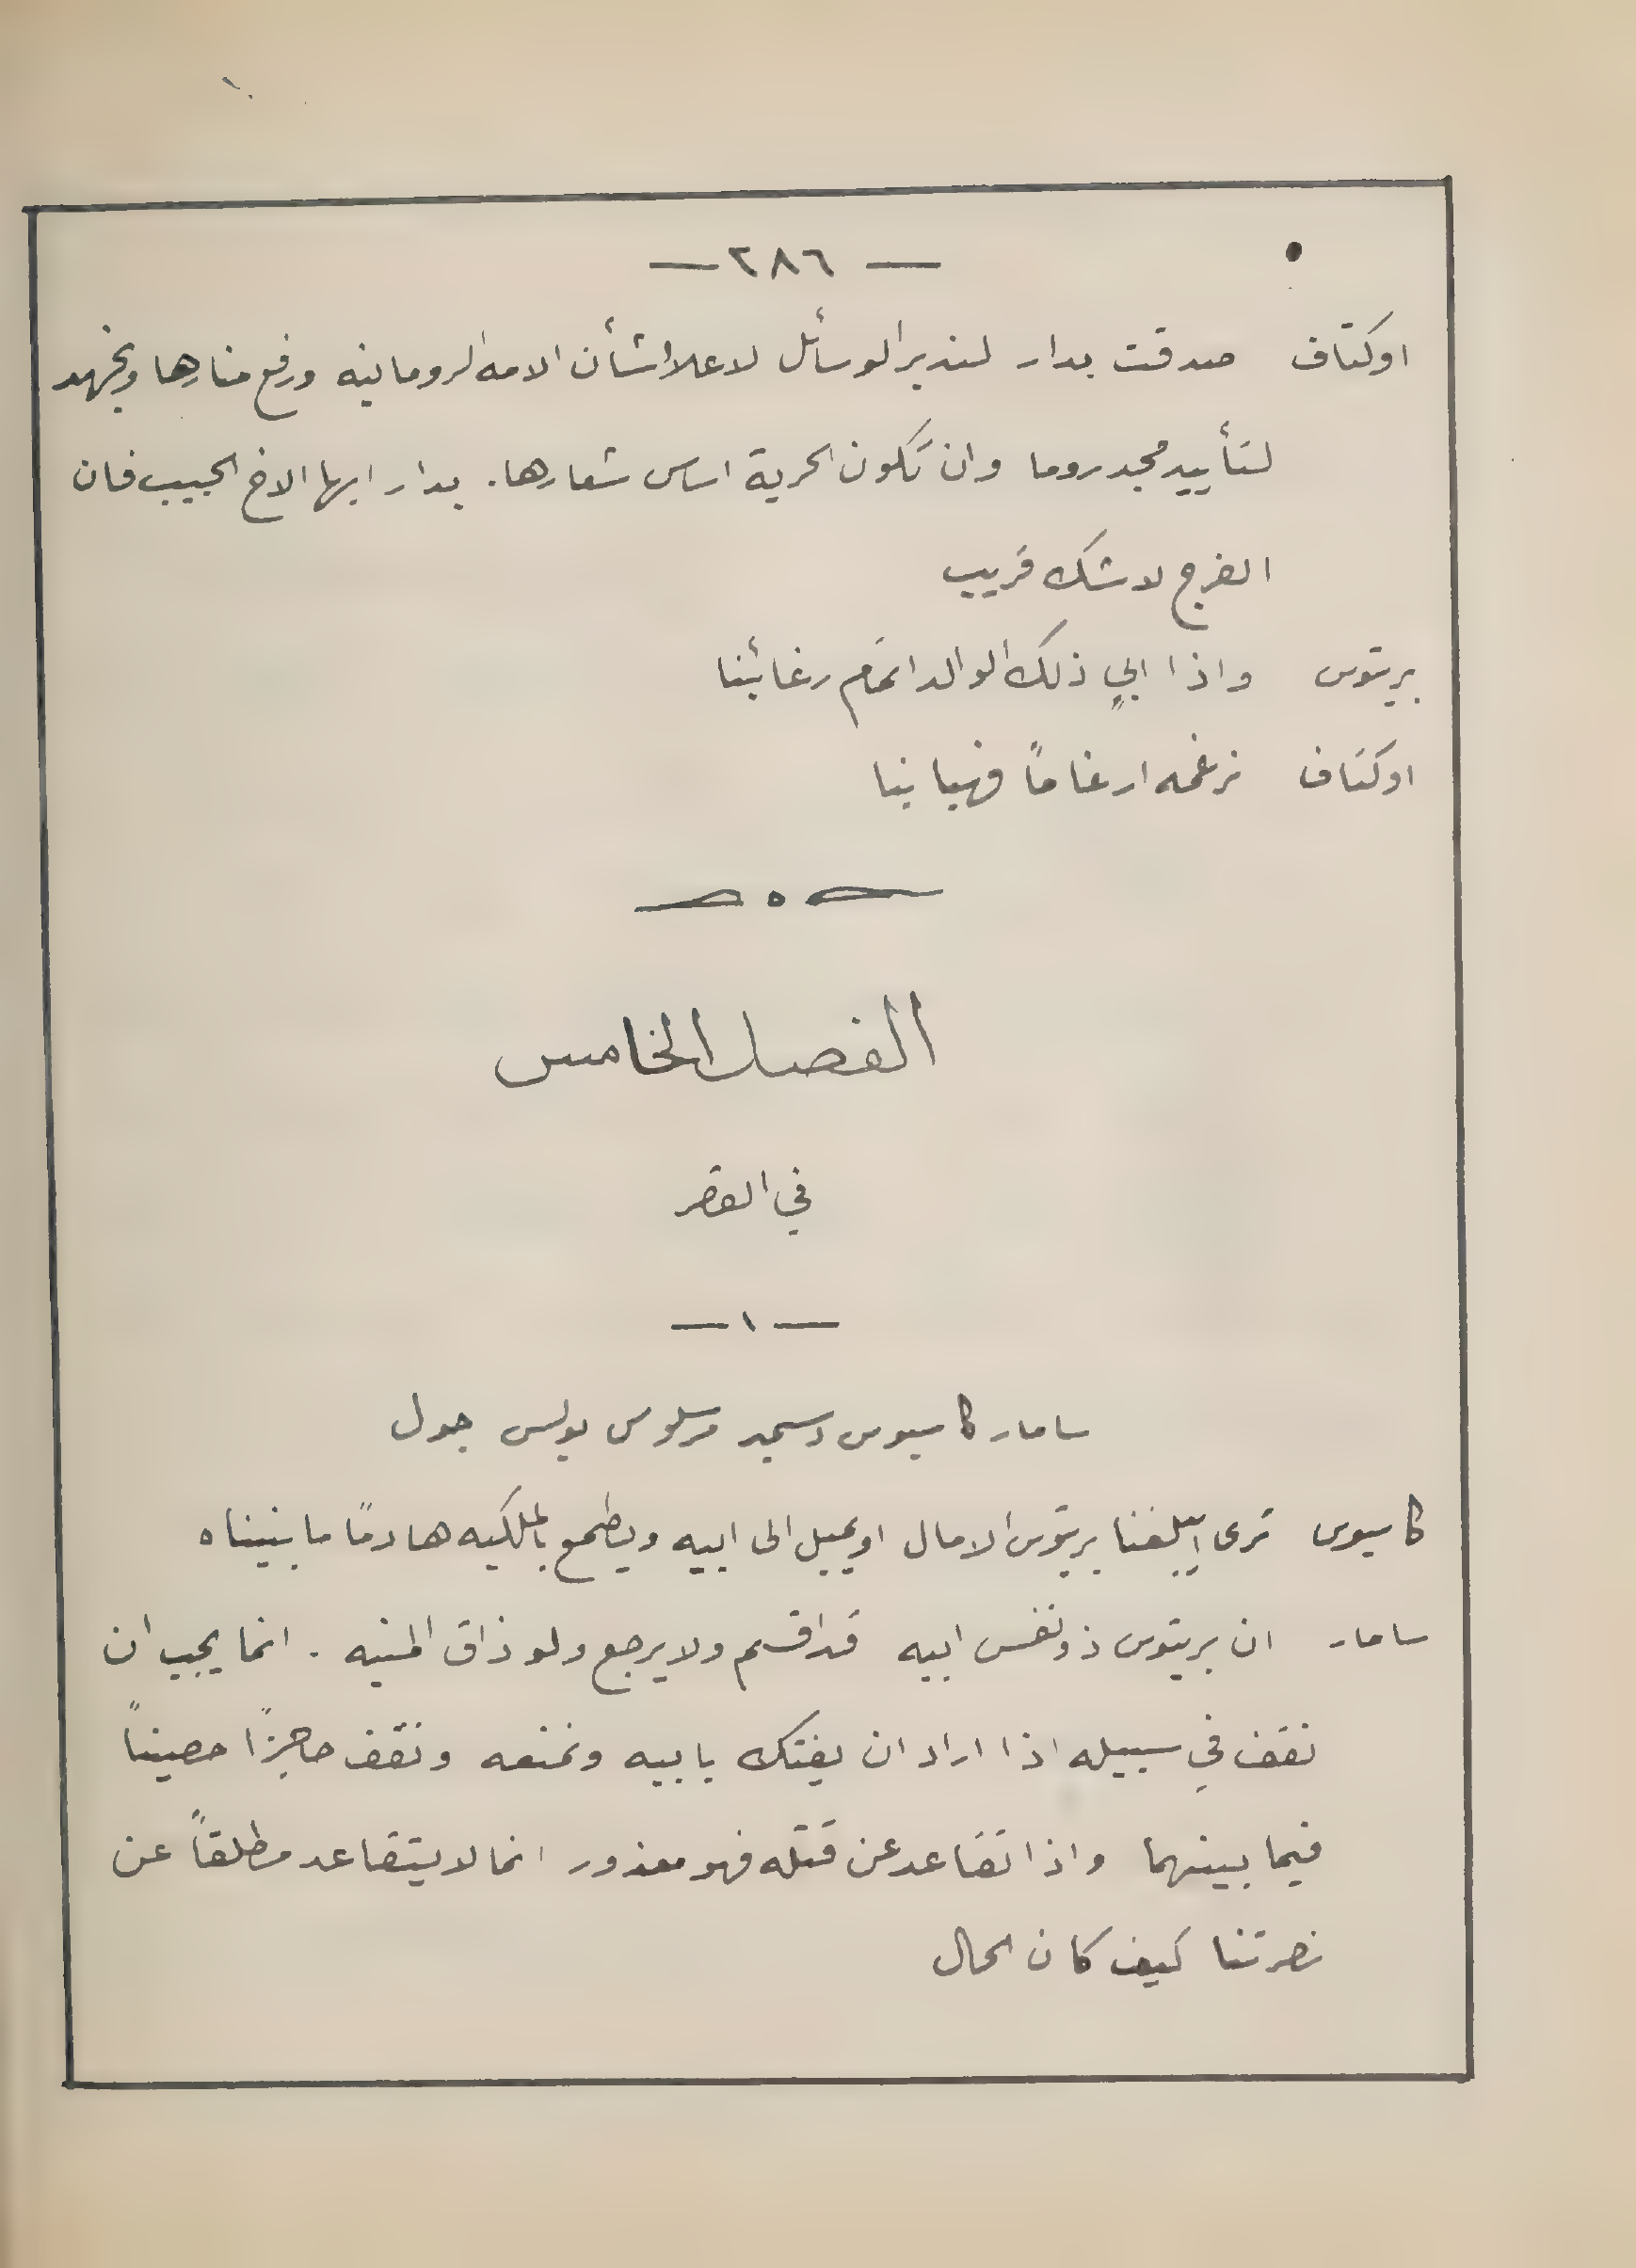 — ٢٨٦ —
اوكتاف صدقت بدار لندبر الوسائل لاعلاء شأن الامه الرومانيه ورفع منارها ونجهد
لتأييد مجد روما وان تكون الحرية اساس شعارها. بدار ايها الاخ الحبيب فان
الفرج لا شك قريب
بريتوس واذا ابي ذلك الوالد اتمام رغائبنا
اوكتاف نرغمه ارغاماً فهيا بنا
الفصل الخامس
في القصر
— ١ —
سامار كاسيوس دسمير مرسلوس بولس جول
كاسيوس ترى ايبلغنا بريتوس الامال او يميل الى ابيه ويطمع بالملكيه هادمًا ما بنيناه
سامار ان بريتوس ذو نفس ابيه قد اقسم ولا يرجع ولو ذاق المنيه . انما يجب ان
نقف في سبيله اذا اراد ان يفتك بابيه ونمنعه ونقف حاجزًا حصيناً
فيما بينهما واذا تقاعد عن قتله فهو معذور انما لا يتقاعد مطلقاً عن
نصرتنا كيف كان الحال